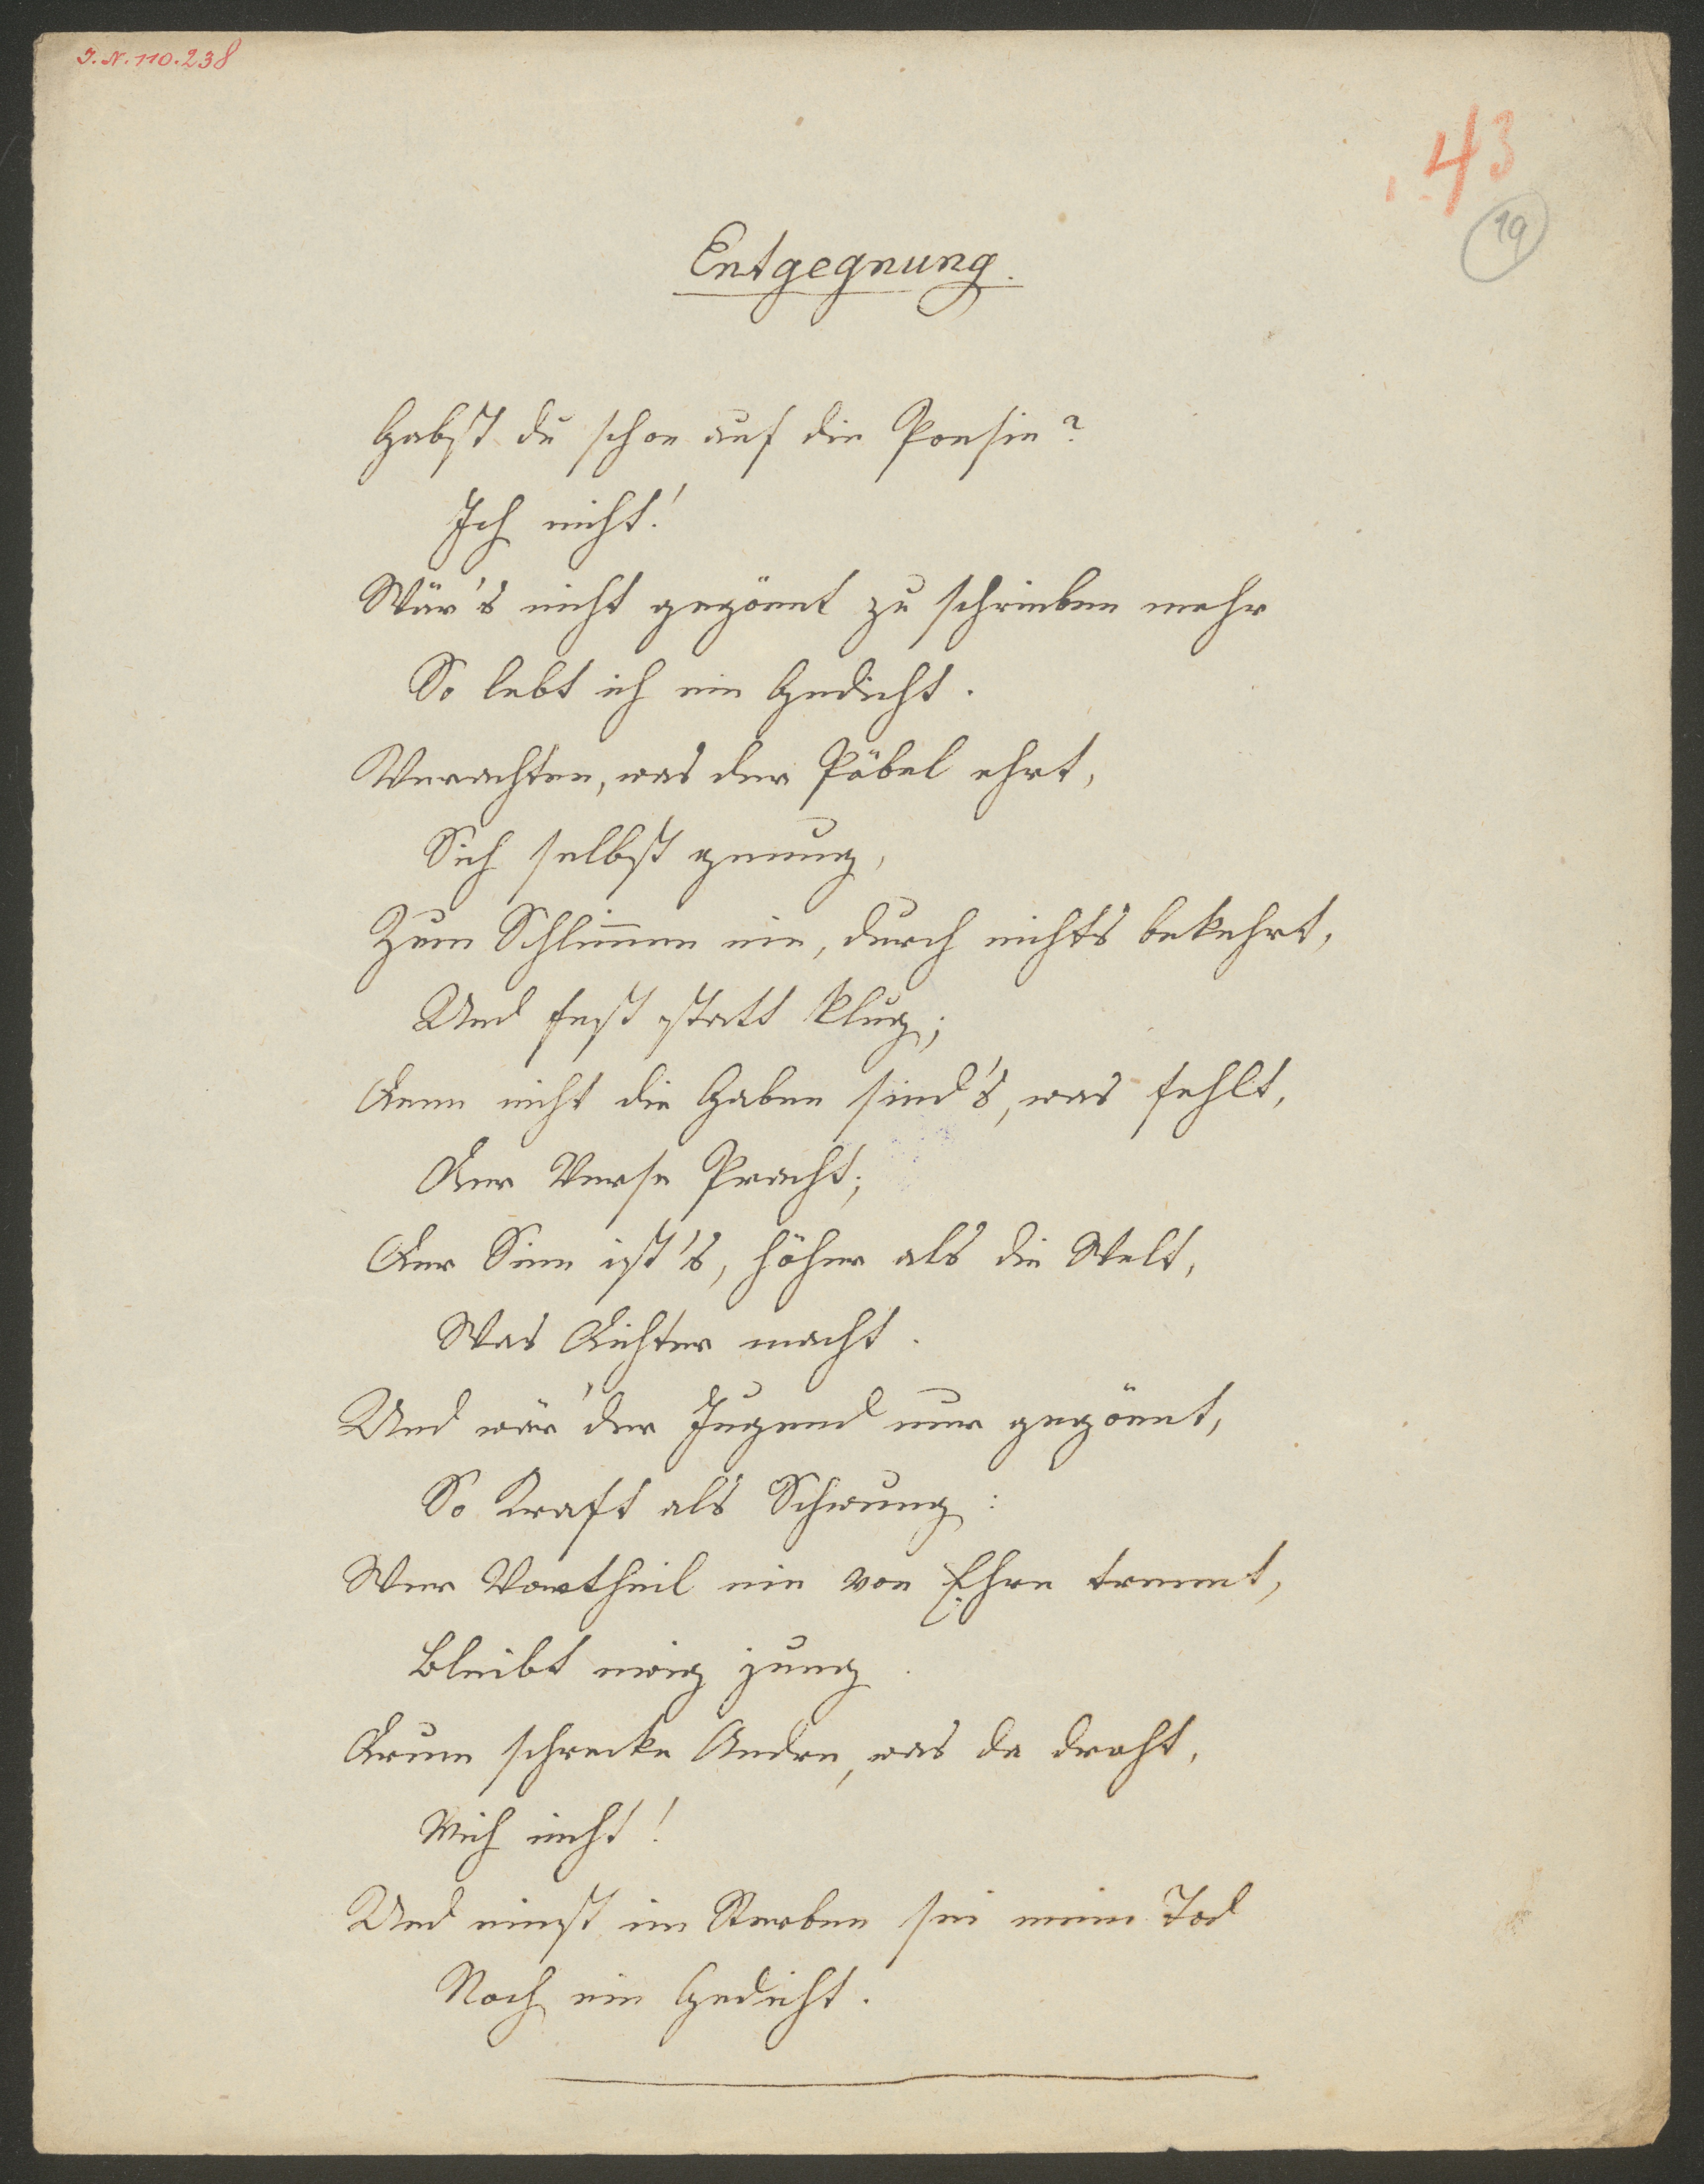 I. N. 110.238
43
19
Entgegnung.
Gabst du schon auf die Poesie?
Ich nicht!
Wär's nicht gegönnt zu schreiben mehr
So lebt ich ein Gedicht.
Verachten, was der Pöbel ehrt,
Sich selbst genung,
Zum Schlim̅en nie, durch nichts bekehrt,
Und fest statt klug;
Denn nicht die Gaben sind's, was fehlt,
Der Verse Pracht;
Der Sinn ist's, höher als die Welt,
Was Dichter macht.
Und wär' der Jugend nur gegönnt,
So Kraft als Schwung:
Wer Vortheil nie von Ehre trennt,
Bleibt ewig jung.
Drum schrecke Andre, was da droht,
Mich nicht!
Und einst im Sterben sei mein Tod
Noch ein Gedicht.